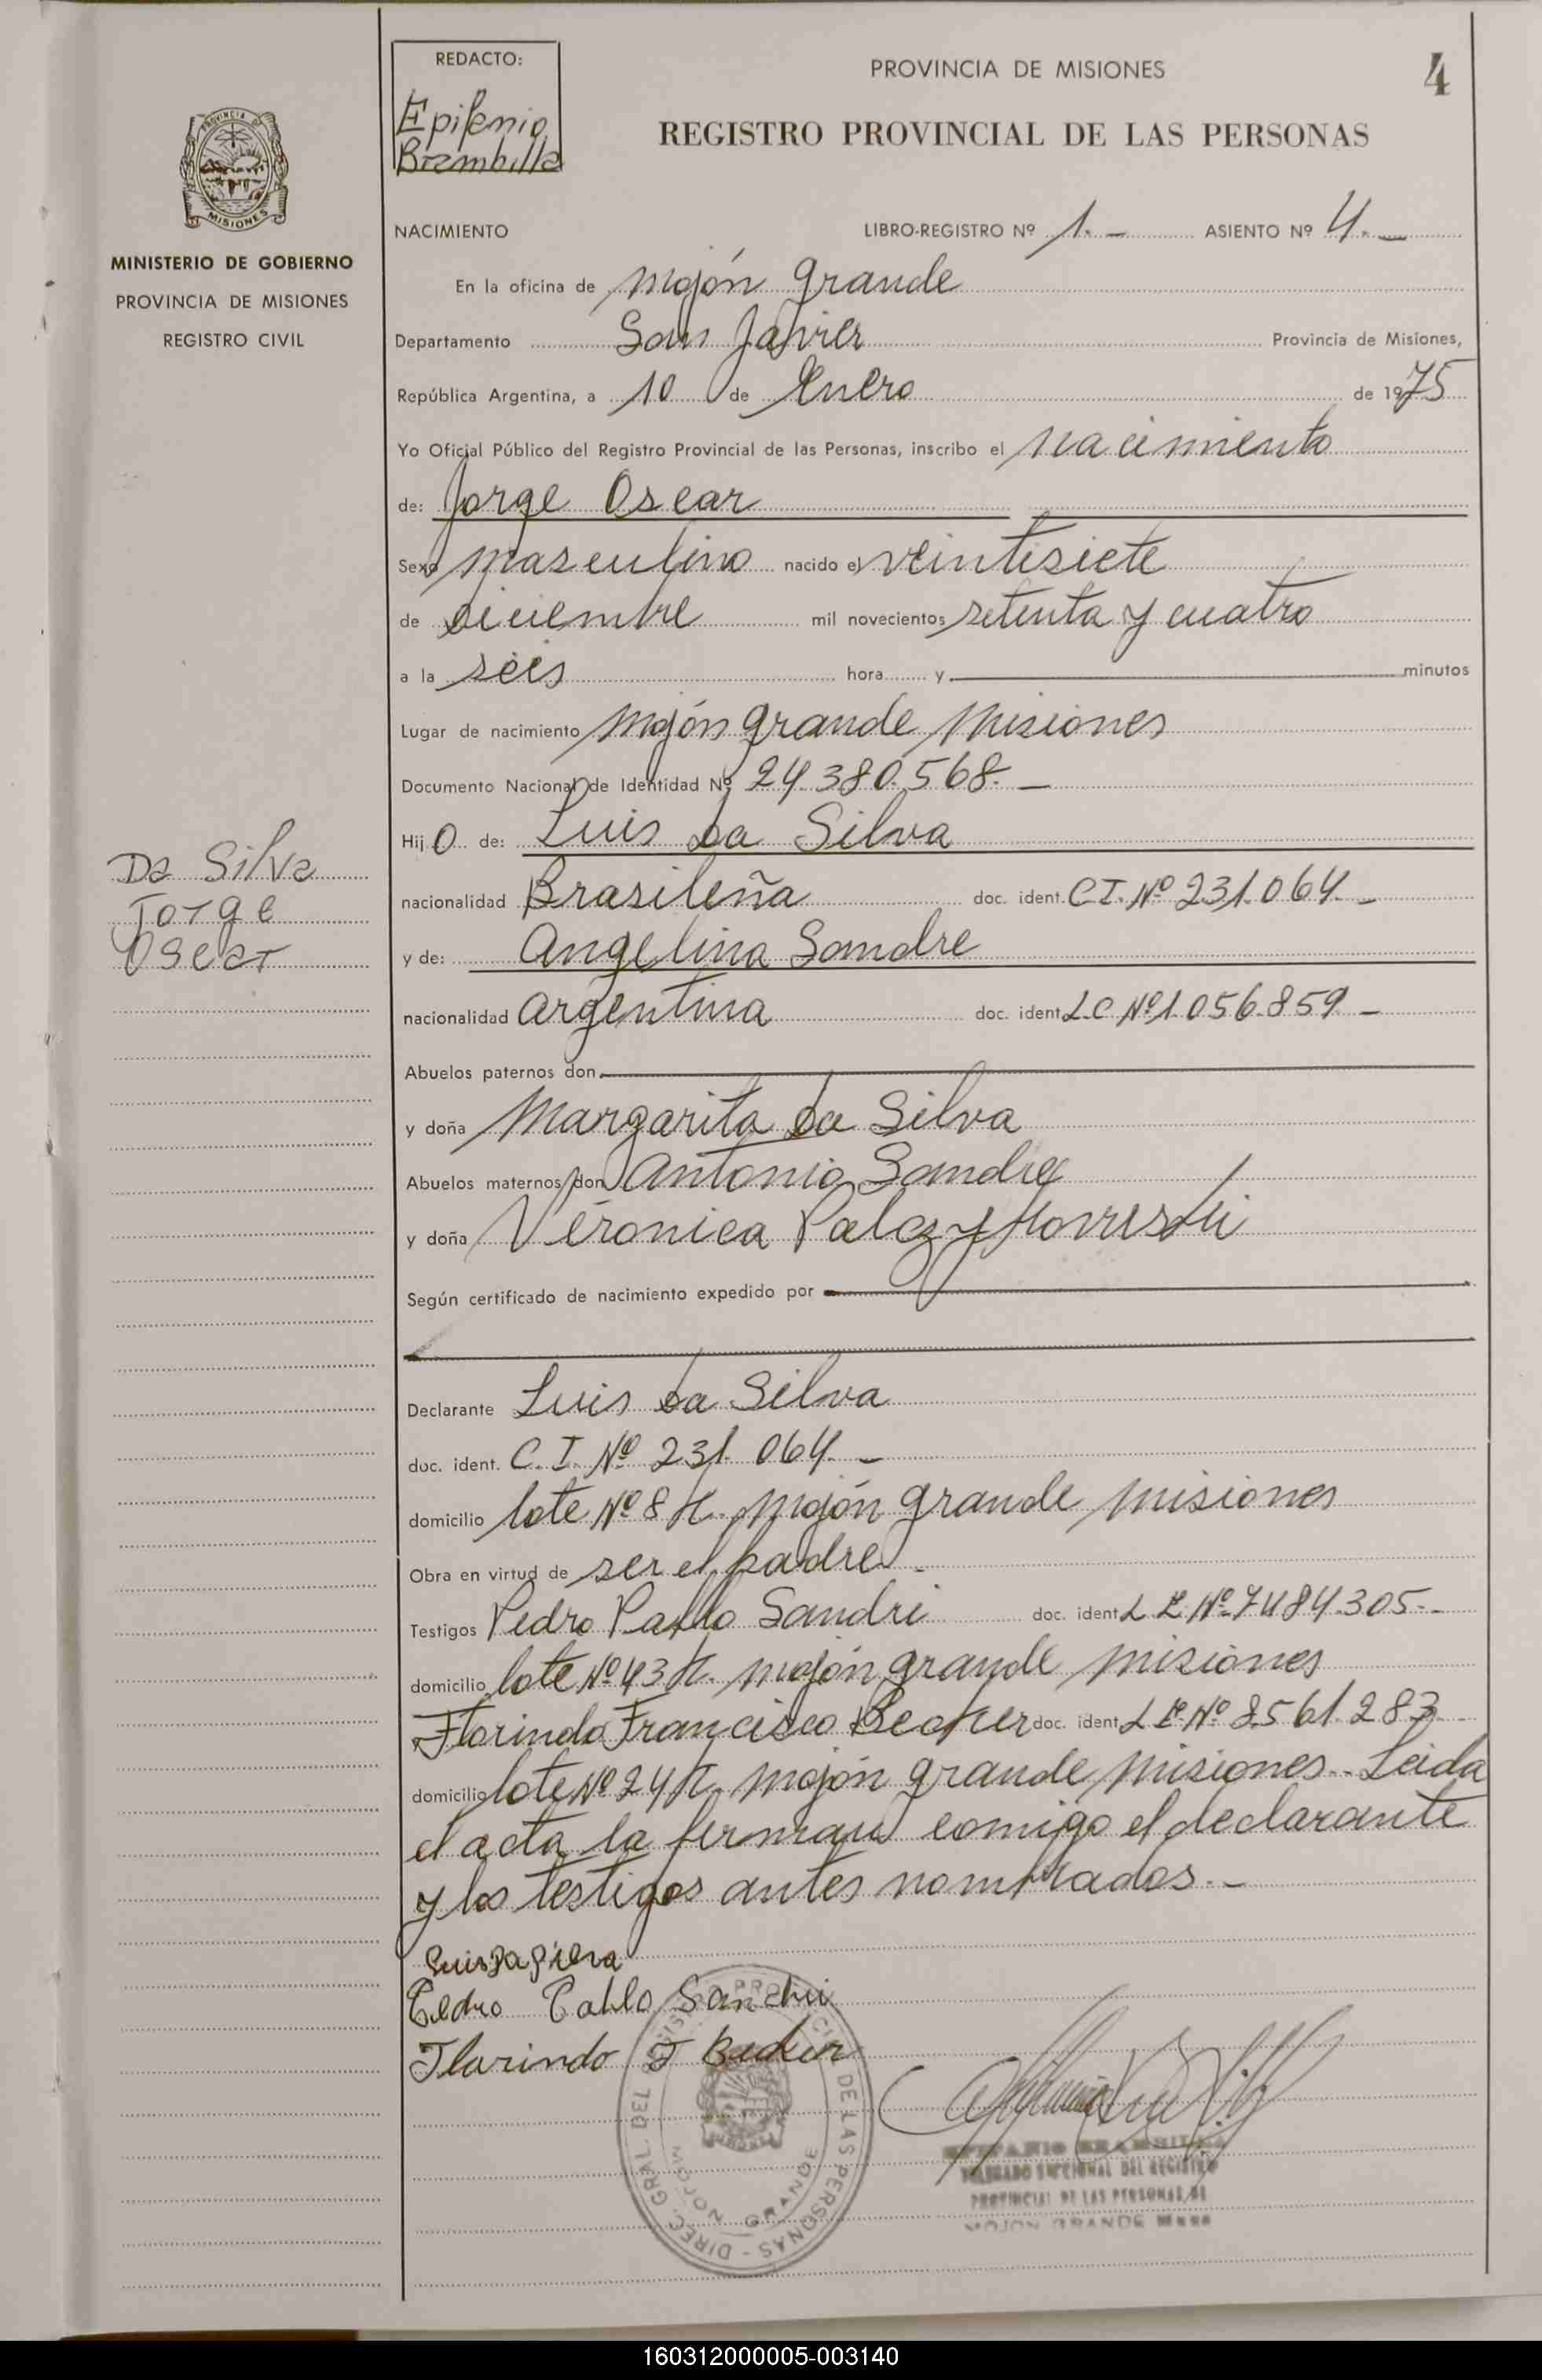 REDACTO:
Epifanio
Brambilla
PROVINCIA DE MISIONES
4
REGISTRO PROVINCIAL DE LAS PERSONAS
PROVINCIA DE
MISIONES
MINISTERIO DE GOBIERNO
PROVINCIA DE MISIONES
REGISTRO CIVIL
NACIMIENTO LIBRO-REGISTRO Nº 1.- ASIENTO Nº 4.-
En la oficina de Mojón grande
Departamento San Javier Provincia de Misiones,
República Argentina, a 10 de Enero de 1975
Yo Oficial Público del Registro Provincial de las Personas, inscribo el nacimiento
de: Jorge Oscar
Sexo masculino nacido el veintisiete
de diciembre mil novecientos setenta y cuatro
a la seis hora y minutos
Lugar de nacimiento Mojón grande Misiones
Documento Nacional de Identidad Nº 24.380.568.-
Hijo de: Luis Da Silva
nacionalidad Brasileña doc. ident. C I. Nº 231.064.-
y de: Angelina Sandre
nacionalidad argentina doc. ident L C Nº 1.056.859 -
Abuelos paternos don
y doña Margarita Da Silva
Abuelos maternos don Antonio Sandre
y doña Véronica
Según certificado de nacimiento expedido por
Declarante Luis Da Silva
doc. ident. C. I. Nº 231.064.-
domicilio lote Nº 8 Mojón grande Misiones
Obra en virtud de ser el padre.-
Testigos Pedro Pablo Sandri doc. ident L E. Nº 7484.305.-
domicilio lote Nº 43 Mojón grande Misiones
Florindo Francisco Becker doc. ident L E. Nº 8.561.283-
domicilio lote Nº 24 Mojón grande Misiones.- Leida
el acta la firman comigo el declarante
y los testigos antes nombrados.-
Da Silva
Jorge
Oscar
Luis Da Silva
Pedro Pablo Sandri
Florindo F Becker
DIREC. GRAL. DEL REGISTRO PROVINCIAL DE LAS PERSONAS
MOJON GRANDE
EPIFANIO BRAMBILLA
DELEGADO SECCIONAL DEL REGISTRO
PROVINCIAL DE LAS PERSONAS DE
MOJON GRANDE
160312000005-003140